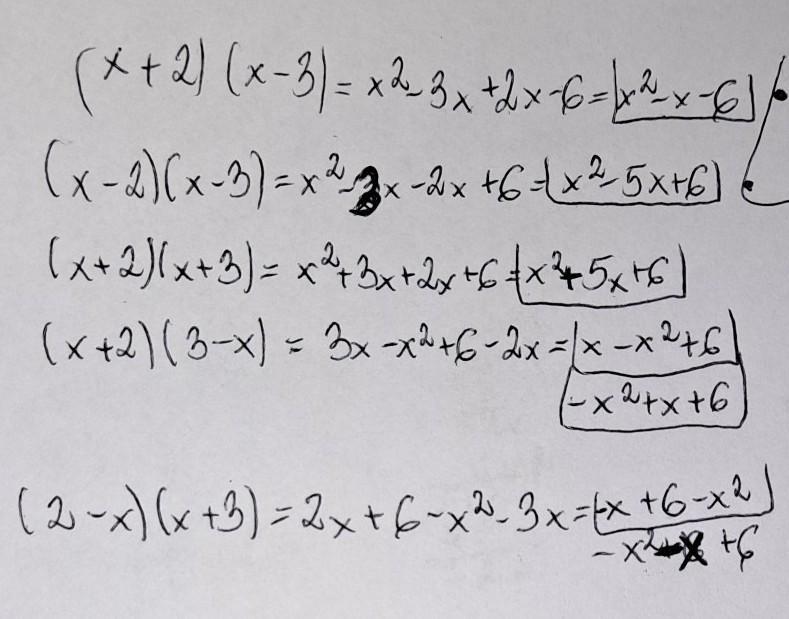 (x+2)(x-3)=x²-3x+2x-6=|x²-x-6|
(x-2)(x-3)=x²-3x-2x+6=|x²-5x+6|
(x+2)(x+3)=x²+3x+2x+6=|x²+5x+6|
(x+2)(3-x)=3x-x²+6-2x=|x-x²+6|
-x²+x+6
(2-x)(x+3)=2x+6-x²-3x=|-x+6-x²|
-x²-x+6